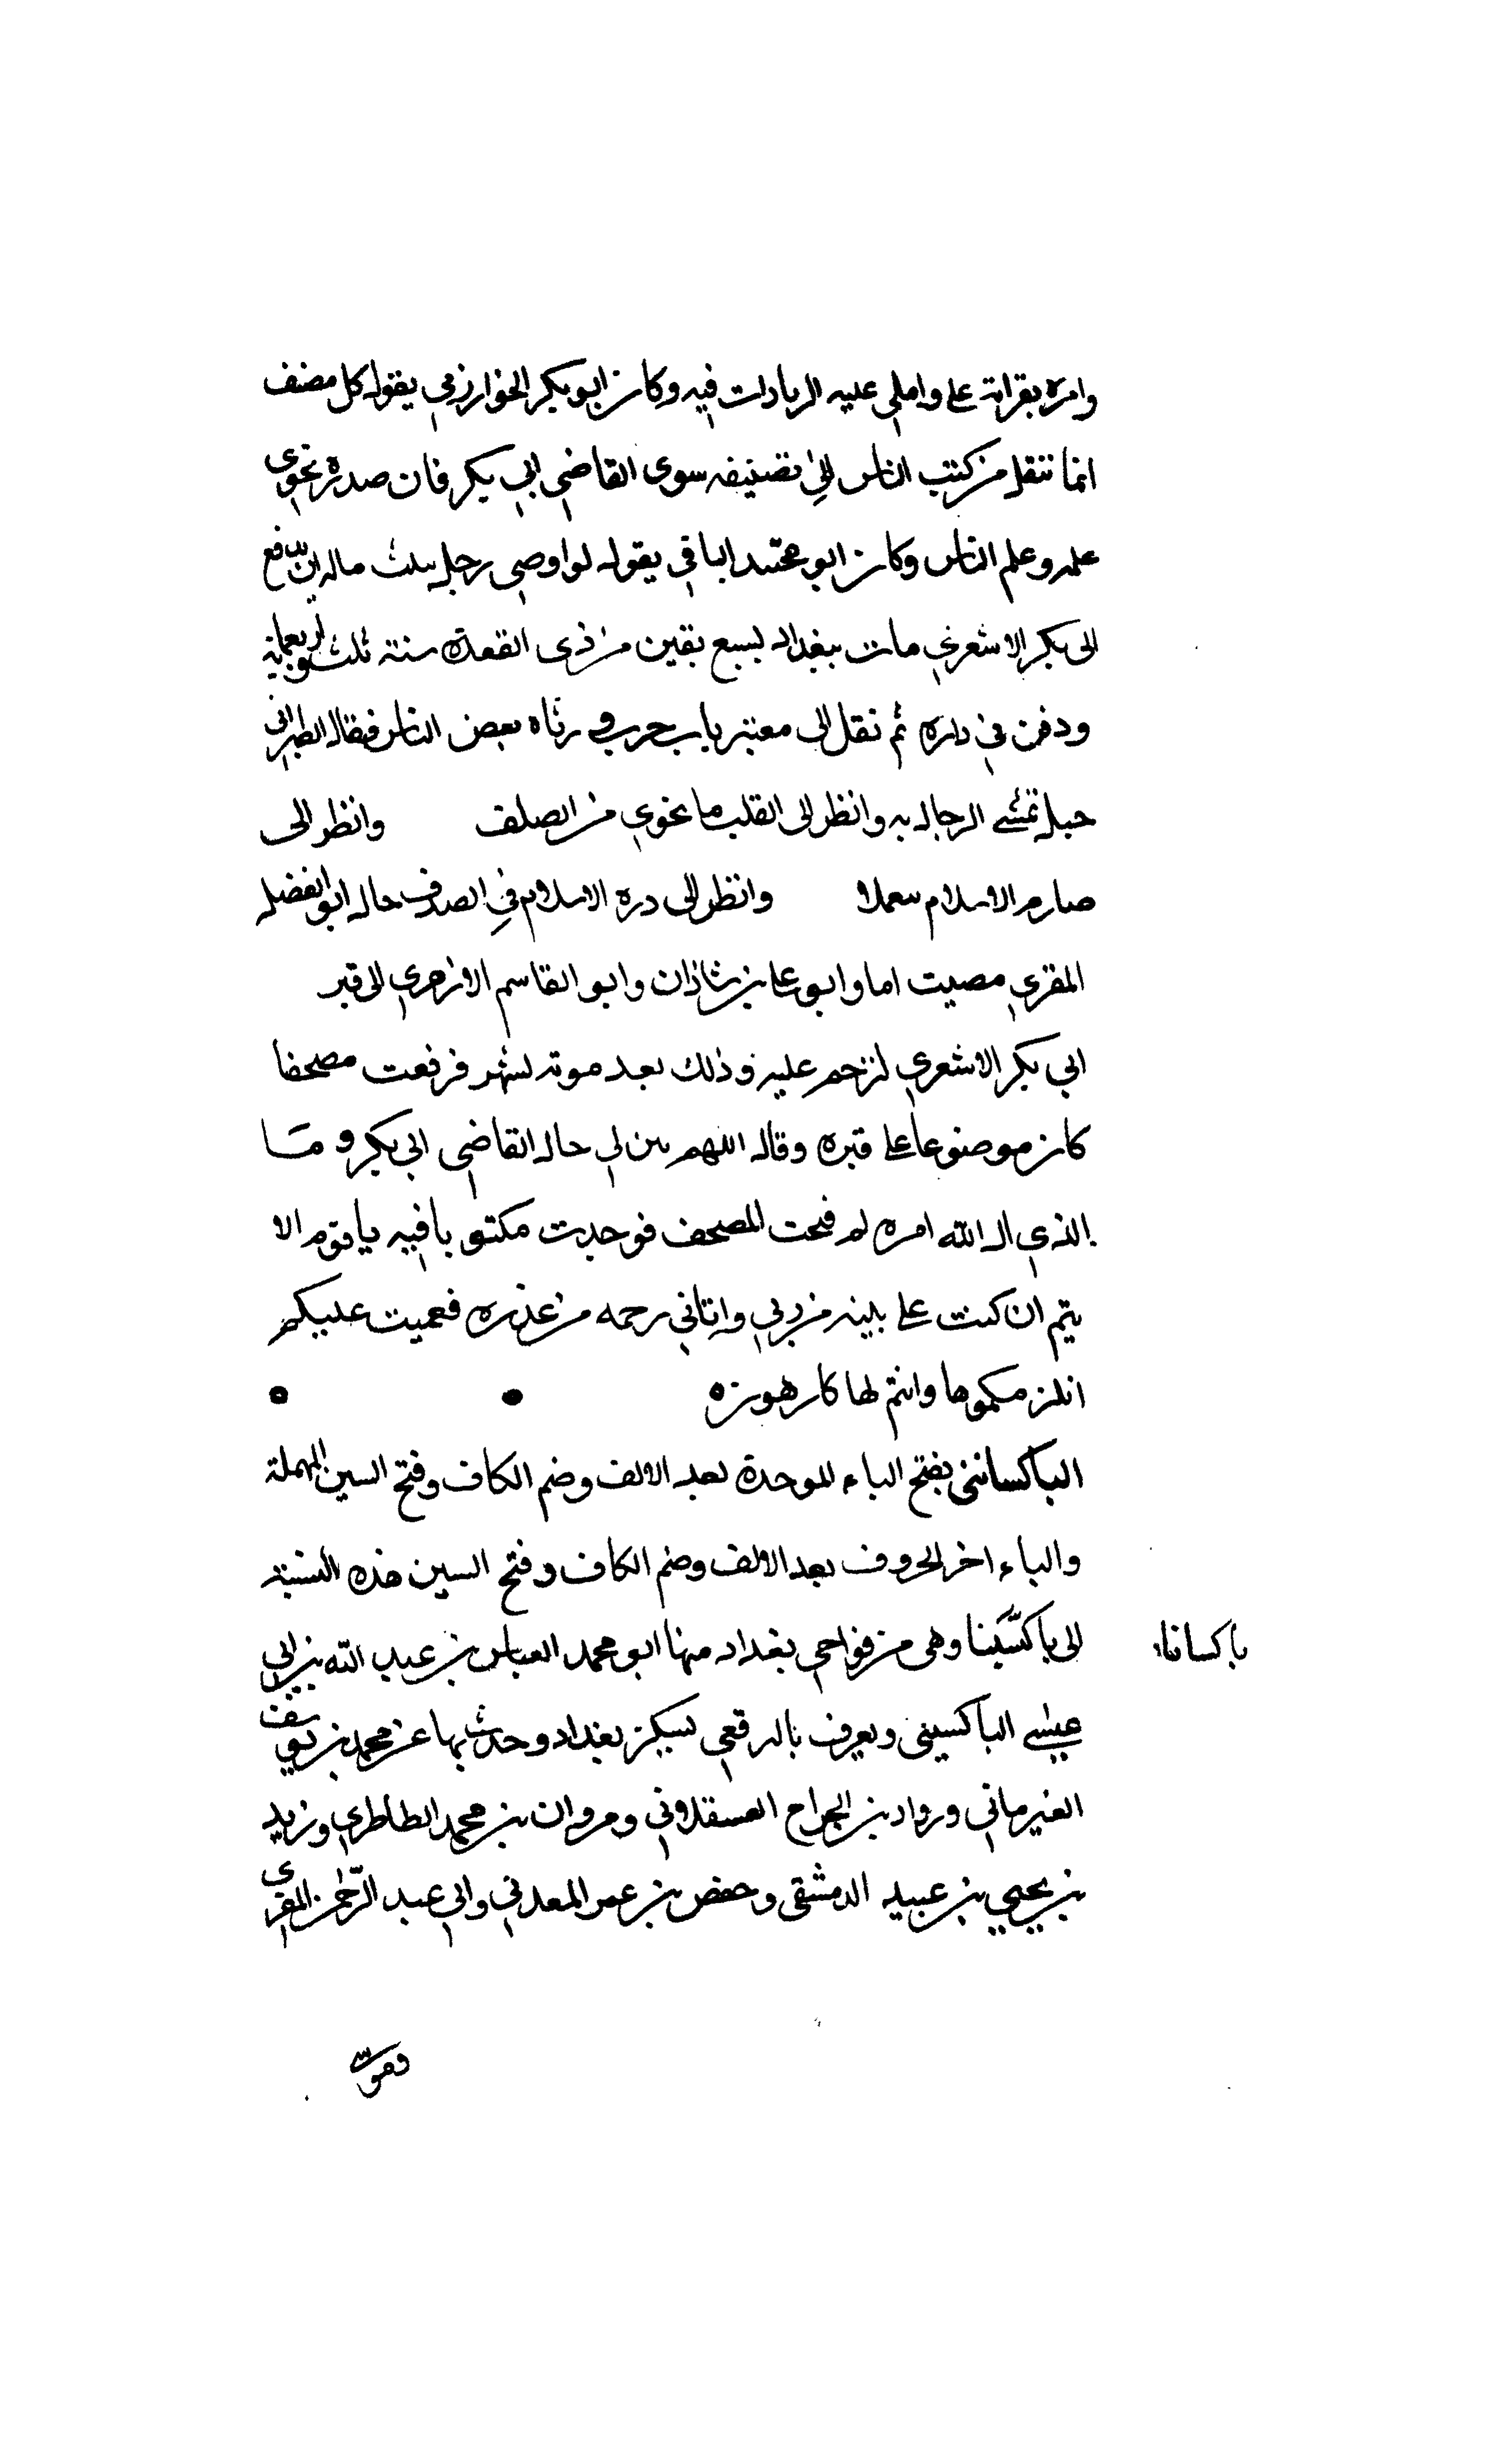 وامره بقراته على واملي عليه الزيادات فيه وكان ابو بكر الخوارزمي يقول كل مصنف
انما تنقل من كتب الناس الى تصنيفه سوى القاضي ابي بكر فان صدره تحوى
علمه وعلم الناس وكان ابو محمد البافي يقول لو اوصى رجل بثلث ماله ان يدفع
الى بكر الاشعري مات ببغداد لسبع بقين من ذى القعدة سنة ثلث واربعمائة
ودفن في داره ثم نقل الى مقبر باب حرب و رثاه بعض الناس فقال
حبل تمشي الرجال به وانظر الى القلب ما تحوي من الصلف وانظر الى
صارم الاسلام وانظر الى درة الاسلام في الصدف حال ابو الفضل
المقري مصيت اما وابو على بن شاذان وابو القاسم الازهري الى قبر
ابي بكر الاشعري لنترحم عليه وذلك بعد موته لشهر فرفعت مصحفا
كان موضوعا على قبره وقال اللهم بين لي حال القاضي ابي بكر و ما
الذي ال الله امره لم فتحت المصحف فوجدت مكتوبا فيه يا قوم الا
يتم ان كنت على بينه من ربي واتاني رحمه من عنده فعميت عليكم
انلزمكموها وانتم لها كارهون
الباكساني بفتح الباء الموحدة بعد الالف وضم الكاف وفتح السين المهملة
والياء اخر الحروف بعد الالف وضم الكاف وفتح السين هذه النسبة
الى باكسينا وهى من نواحي بغداد منها ابو محمد العباس بن عبد الله بن ابي
عيسى الباكسيني ويعرف بالترقفي سكن بغداد وحدث بها عن محمد بن يوسف
الفيرماني ورواد بن الجراح العسقلاني ومروان بن محمد الطاطري وزيد
بن يحيى بن عبيد الدمشقى وحفص بن عمر المعدني وابي عبد الرحمن المقري
باكسانا